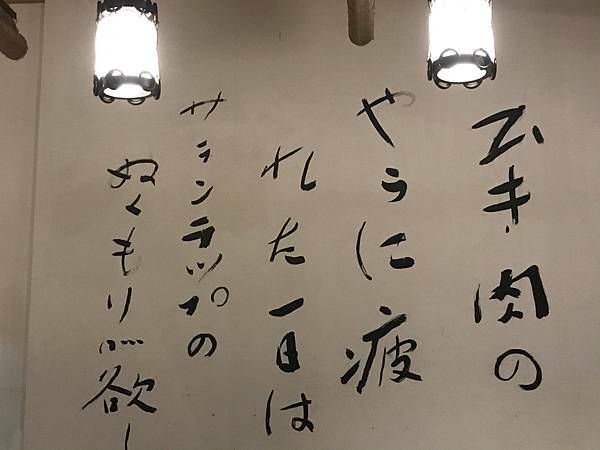 ひき肉の
やうに疲
れた一日は
サランラップの
ぬくもりが欲し